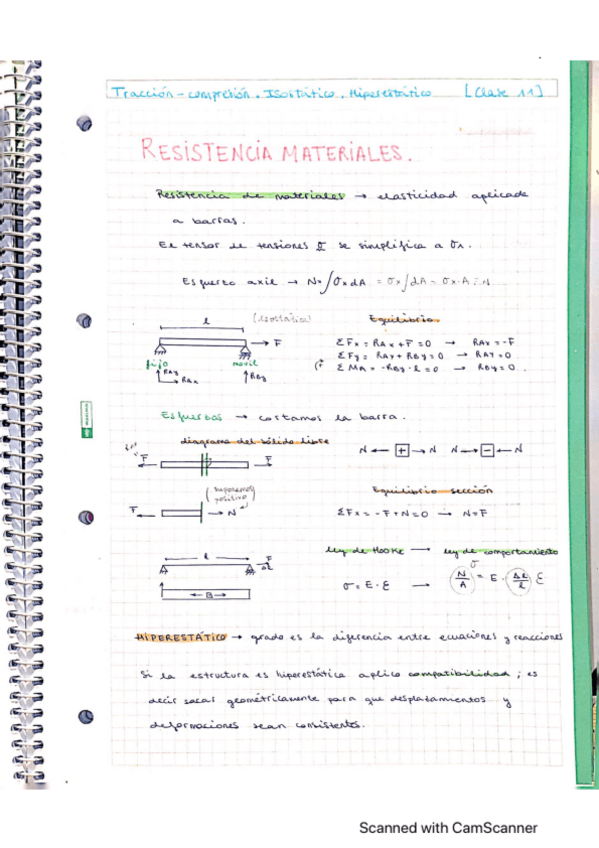 Tracción - compresión. Isostático. Hiperestático [Clase 11]
RESISTENCIA MATERIALES.
Resistencia de materiales → elasticidad aplicada
a barras.
El tensor de tensiones σ se simplifica a σx.
Esfuerzo axil → N = ∫σx dA = σx ∫dA = σx · A = N
l (Isostática) Equilibrio
F ΣFx = RAx + F = 0 → RAx = -F
fijo movil ΣFy = RAy + RBy = 0 → RAy = 0
RAy RAx RBy ΣMA = -RBy · l = 0 → RBy = 0.
Esfuerzos → cortamos la barra.
diagrama del sólido libre
N ← + → N N → - ← N
F F
(suponemos positivo) Equilibrio sección
F → N ΣFx = -F + N = 0 → N = F
l F ley de HOOKE → ley de comportamiento
Δl σ
σ = E · ε → N/A = E · Δl/l ε
← B →
HIPERESTÁTICO → grado es la diferencia entre ecuaciones y reacciones
Si la estructura es hiperestática aplico compatibilidad; es
decir sacar geométricamente para que desplazamientos y
deformaciones sean consistentes.
Scanned with CamScanner